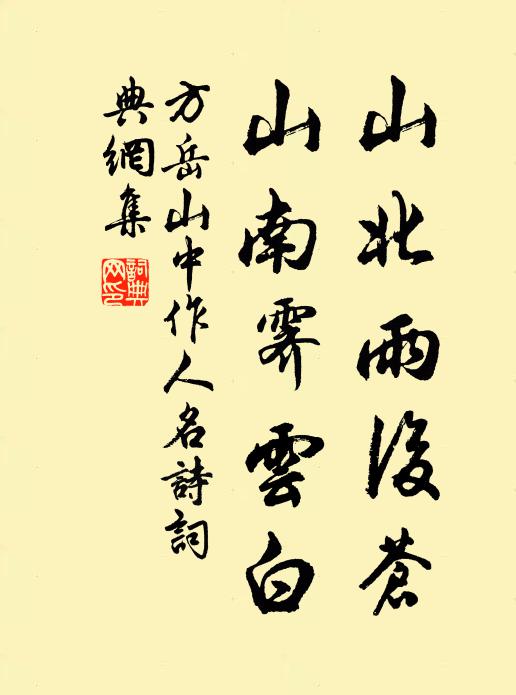 山北雨後蒼
山南霽雲白
方岳山中作人名詩詞
典網集
詞典
网印